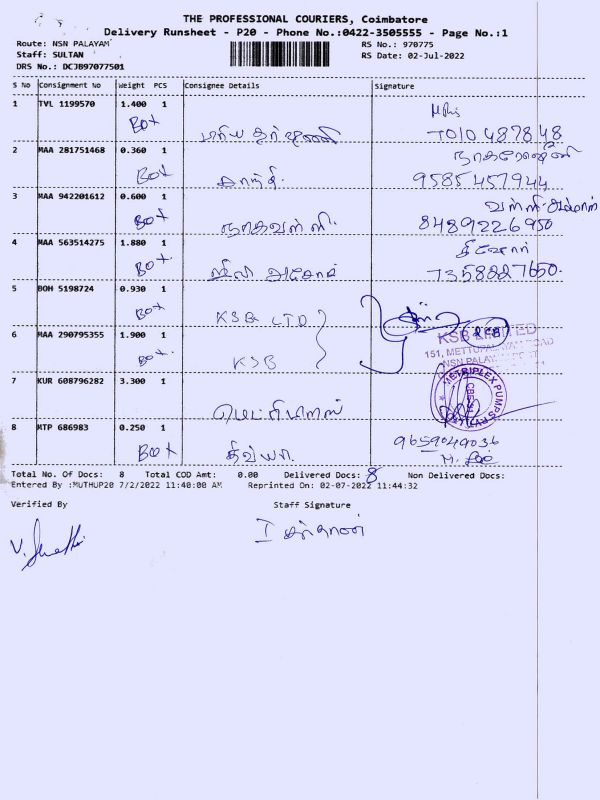 THE PROFESSIONAL COURIERS, Coimbatore
Delivery Runsheet - P20 - Phone No.:0422-3505555 - Page No.:1
Route: NSN PALAYAM RS No.: 970775
Staff: SULTAN RS Date: 02-Jul-2022
DRS No.: DCJB97077501
S No Consignment No Weight PCS Consignee Details Signature
1 TVL 1199570 1.400 1
BOX 7010487848
2 MAA 281751468 0.360 1
BOX காந்தி. 9585457944
3 MAA 942201612 0.600 1 வள்ளியம்மாள்
BOX நாகவள்ளி. 8489226950
4 MAA 563514275 1.880 1
BOX 7358827650.
5 BOH 5198724 0.930 1
BOX KSB LTD
KSB LIMITED
6 MAA 290795355 1.900 1
151, METTUPALAYAM ROAD
BOX KSB
7 KUR 608796282 3.300 1
METRIPLEX PUMPS
8 MTP 686983 0.250 1 9659049036
BOX திவ்யா.
Total No. Of Docs: 8 Total COD Amt: 0.00 Delivered Docs: 8 Non Delivered Docs:
Entered By :MUTHUP20 7/2/2022 11:40:00 AM Reprinted On: 02-07-2022 11:44:32
Verified By Staff Signature